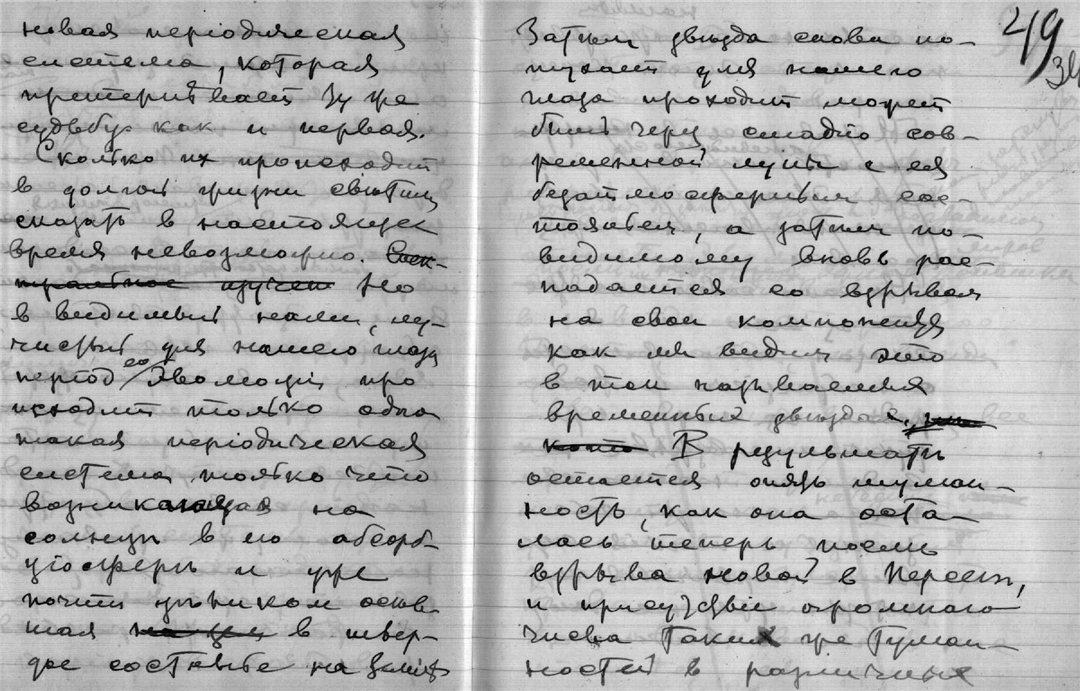 новая періодическая
система, которая
претерпѣваетъ ту же
судьбу какъ и первая.
Сколько их происходит
в долгой жизни свѣтил
сказать в настоящее
время невозможно. Спек-
тральное изучен Но
в видимый нами, лу-
чистый для нашего глаза
період ея эволюціи про
исходит только одна
такая періодическая
система только что
возникающая на
солнцѣ в его абсорб-
ціосферѣ и уже
почти цѣликом осѣв-
шая в твер-
дое состоянье на землѣ
49
Затѣм двѣзда снова по-
тухает для нашего
глаза проходит может
быть через стадію сов-
ременной луны с ея
безатмосферным сос-
тояньем, а затѣм по-
видимому вновь рас-
падается со взрывом
на свои компоненты
как мы видим это
в так называемых
временных звѣздах,
В результатѣ
остается опять туман-
ность, как она оста-
лась теперь послѣ
взрыва новой в Персеѣ,
и присутствіе огромнаго
числа таких же туман-
ностей в различных